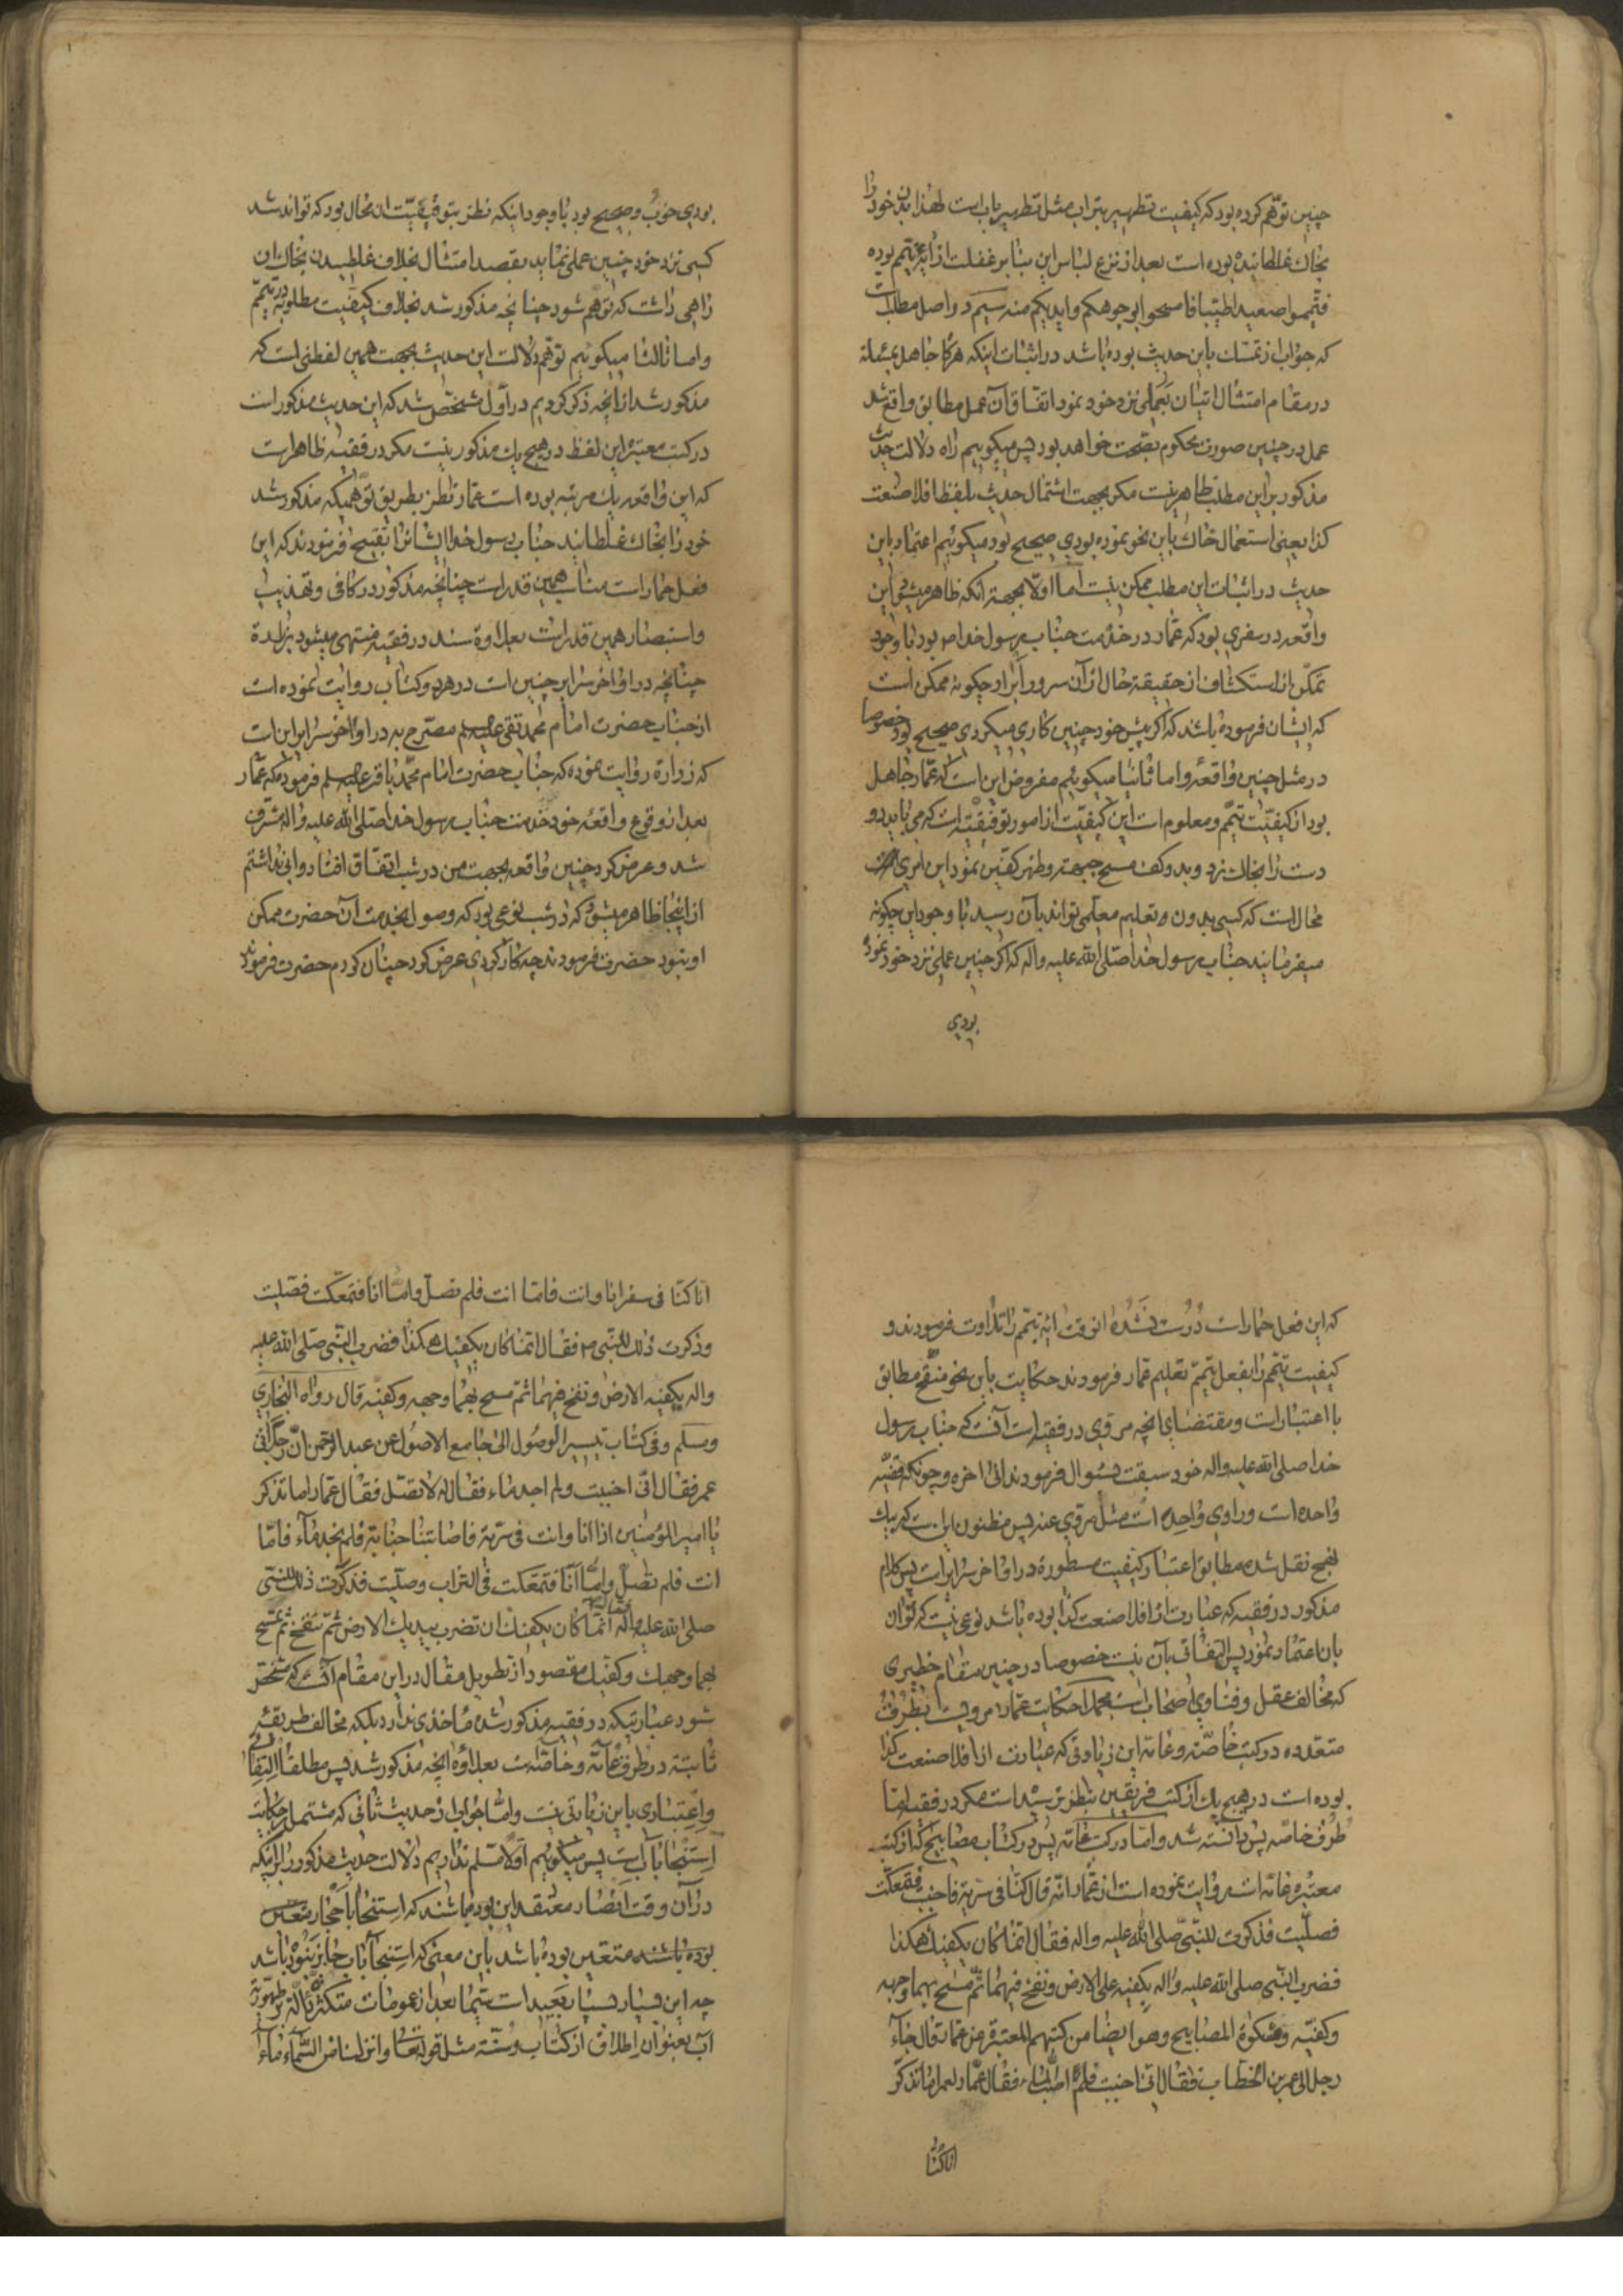 چنین توهم کرده بود که کیفیت تطهیر بتراب مثل تطهیر باب است لهذا بدن خود را
بخاك غلطانیده بوده است بعد از نزع لباس این بنا بر غفلت از آیه تیمم بوده
فتیمموا صعیدا طیبا فامسحوا بوجوهکم وایدیکم منه سیم در اصل مطلب
که جواب از تمسك باین حدیث بوده باشد در اثبات اینکه هرکاه جاهل بمسئلة
در مقام امتثال اتیان بعملی نزد خود نمود اتفاقا آن عمل مطابق واقع شد
عمل در چنین صورت محکوم بصحت خواهد بود پس میکوییم راه دلالت حدیث
مذکور براین مطلب ظاهر نیست مکر بجهت اشتمال حدیث بلفظ افلا صنعت
کذا یعنی استعمال خاك باین نحو نموده بودی صحیح بود میکوئیم اعتماد باین
حدیث در اثبات این مطلب ممکن نیست اما اولا بجهة انکه ظاهر میشود این
واقعه در سفری بود که عمار در خدمت جناب رسول خدا ص بود با وجود
تمکن از استکشاف از حقیقة حال از آن سرور ابرار چکونه ممکن است
که ایشان فرموده باشند که اکر پیش خود چنین کاری میکردی صحیح بود خصوصا
در مثل چنین واقعه واما ثانیا میکوئیم مفروض این است که عمار جاهل
بود از کیفیت تیمم و معلوم است این کیفیت از امور توقیفیه است که می باید دو
دست را بخاك زد و بدو کف مسح جبهه و ظهر کفین نمود این امری است
محال است که کسی بدون تعلیم معلمی تواند بآن رسید با وجود این چکونه
میفرمایند جناب رسول خدا صلی الله علیه واله که اکر چنین عملی نزد خود نموده
بودی
بودی خوب و صحیح بود با وجود اینکه نظر بتوقیفیت ان محال بود که تواند شد
کسی نزد خود چنین عملی نماید بقصد امتثال بخلاف غلطیدن بخاك ان
راهی داشت که توهم شود چنانچه مذکور شد بخلاف کیفیت مطلوبه در تیمم
واما ثالثا میکوییم توهم دلالت این حدیث بجهت همین لفظی است که
مذکور شد از انچه ذکر کردیم در اول مشخص شد که این حدیث مذکور است
در کتب معتبره این لفظ در هیچ یك مذکور نیست مکر در فقیه ظاهر است
که این واقعه یك مرتبه بوده است عمار نظر بطریق توهمیکه مذکور شد
خود را بخاك غلطانید جناب رسول خدا ایشانرا تقبیح فرمودند که این
فعل حمار است مناسب همین قدر است چنانچه مذکور در کافی و تهذیب
واستبصار همین قدر است بعلاوة سند در فقیه منتهی میشود بزرارة
چنانچه در اواخر سرایر چنین است در هر دو کتاب روایت نموده است
از جناب حضرت امام محمد تقی علیه السلم مصرح به در اواخر سرایر این است
که زرارة روایت نموده که جناب حضرت امام محمد باقر علیه السلم فرموده که عمار
بعد از وقوع واقعه خود خدمت جناب رسول خدا صلی الله علیه واله مشرف
شد و عرض کرد چنین واقعه بجهت من در شب اتفاق افتاد وابی نداشتم
از اینجا ظاهر میشود که در شب نوعی بود که وصول بخدمت آن حضرت ممکن
او نبود حضرت فرمودند چه کار کردی عرض کرد چنان کردم حضرت فرمودند
که این فعل حمار است درست نشده انوقت ایه تیمم را تلاوت فرمودند و
کیفیت تیمم را بفعل تیمم تعلیم عمار فرمودند حکایت باین نحو منقح مطابق
با اعتبار است ومقتضای انچه مروی در فقیه است آنست که جناب رسول
خدا صلی الله علیه واله خود سبقت بسؤال فرمودند الی اخره و چونکه قضیه
واحده است و راوی واحد است مثل مروی عنه پس مظنون این است که بر یك
نهج نقل شده مطابق اعتبار کیفیت مسطوره در اواخر سرایر است پس کلام
مذکور در فقیه که عبارت از افلا صنعت کذا بوده باشد نوعی نیست که توان
بان اعتماد نمود پس التفات بآن نیست خصوصا در چنین مقام خطیری
که مخالف عقل و فتاوی اصحاب است مجملا حکایت عمار مرویست بطرق
متعدده در کتب خاصه و عامه این زیادتی که عبارت از افلا صنعت کذا
بوده است در هیچ یك از کتب فریقین بنظر نرسیده است مکر در فقیه اما
طرق خاصه پس دانسته شد واما در کتب عامه پس در کتاب مصابیح که از کتب
معتبره عامه است روایت نموده است از عمار انه قال کنا فی سریة فاجنبت فتمعکت
فصلیت فذکرت للنبی صلی الله علیه واله فقال انما کان یکفیك هکذا
فضرب النبی صلی الله علیه واله بکفیه علی الارض ونفخ فیهما ثم مسح بهما وجهه
وکفیه ومشکوة المصابیح وهو ایضا من کتبهم المعتبرة عن عمار قال جاء
رجل الی عمر بن الخطاب فقال انی اجنبت فلم اصب الماء فقال عمار لعمر اما تذکر
انا کنا
انا کنا فی سفر انا وانت فاما انت فلم تصل واما انا فتمعکت فصلیت
وذکرت ذلك للنبی ص فقال انما کان یکفیك هکذا فضرب النبی صلی الله علیه
واله بکفیه الارض ونفخ فیهما ثم مسح بهما وجهه وکفیه قال رواه البخاری
ومسلم وفی کتاب تیسیر الوصول الی جامع الاصول عن عبد الرحمن ان رجلا اتی
عمر فقال انی اجنبت ولم اجد ماء فقال له لا تصل فقال عمار اما تذکر
یا امیر المؤمنین اذ انا وانت فی سریة فاصابتنا جنابة فلم نجد ماء فاما
انت فلم تصل واما انا فتمعکت فی التراب وصلیت فذکرت ذلك للنبی
صلی الله علیه واله فقال انما کان یکفیك ان تضرب بیدیك الارض ثم تنفخ ثم تمسح
بهما وجهك وکفیك مقصود از تطویل مقال در این مقام آنست که مشخص
شود عبارتیکه در فقیه مذکور شده ماخذی ندارد بلکه مخالف طریقه
ثابته در طرق عامه و خاصه است بعلاوه انچه مذکور شد پس مطلقا التفاتی
واعتباری باین زیادتی نیست واما جواب از حدیث ثانی که مشتمل بر حکایت
استنجا باب است پس میکوییم اولا مسلم نداریم دلالت حدیث مذکور را بر اینکه
در آن وقت انصار معتقد این بوده باشند که استنجا باحجار متعین
بوده باشند متعین بوده باشد باین معنی که استنجا باب جایز نبوده باشد
چه این بسیار بسیار بعید است سیما بعد از عمومات متکثره داله بر طهوریة
آب بعنوان اطلاق از کتاب وسنة مثل قوله تعالی وانزلنا من السماء ماء